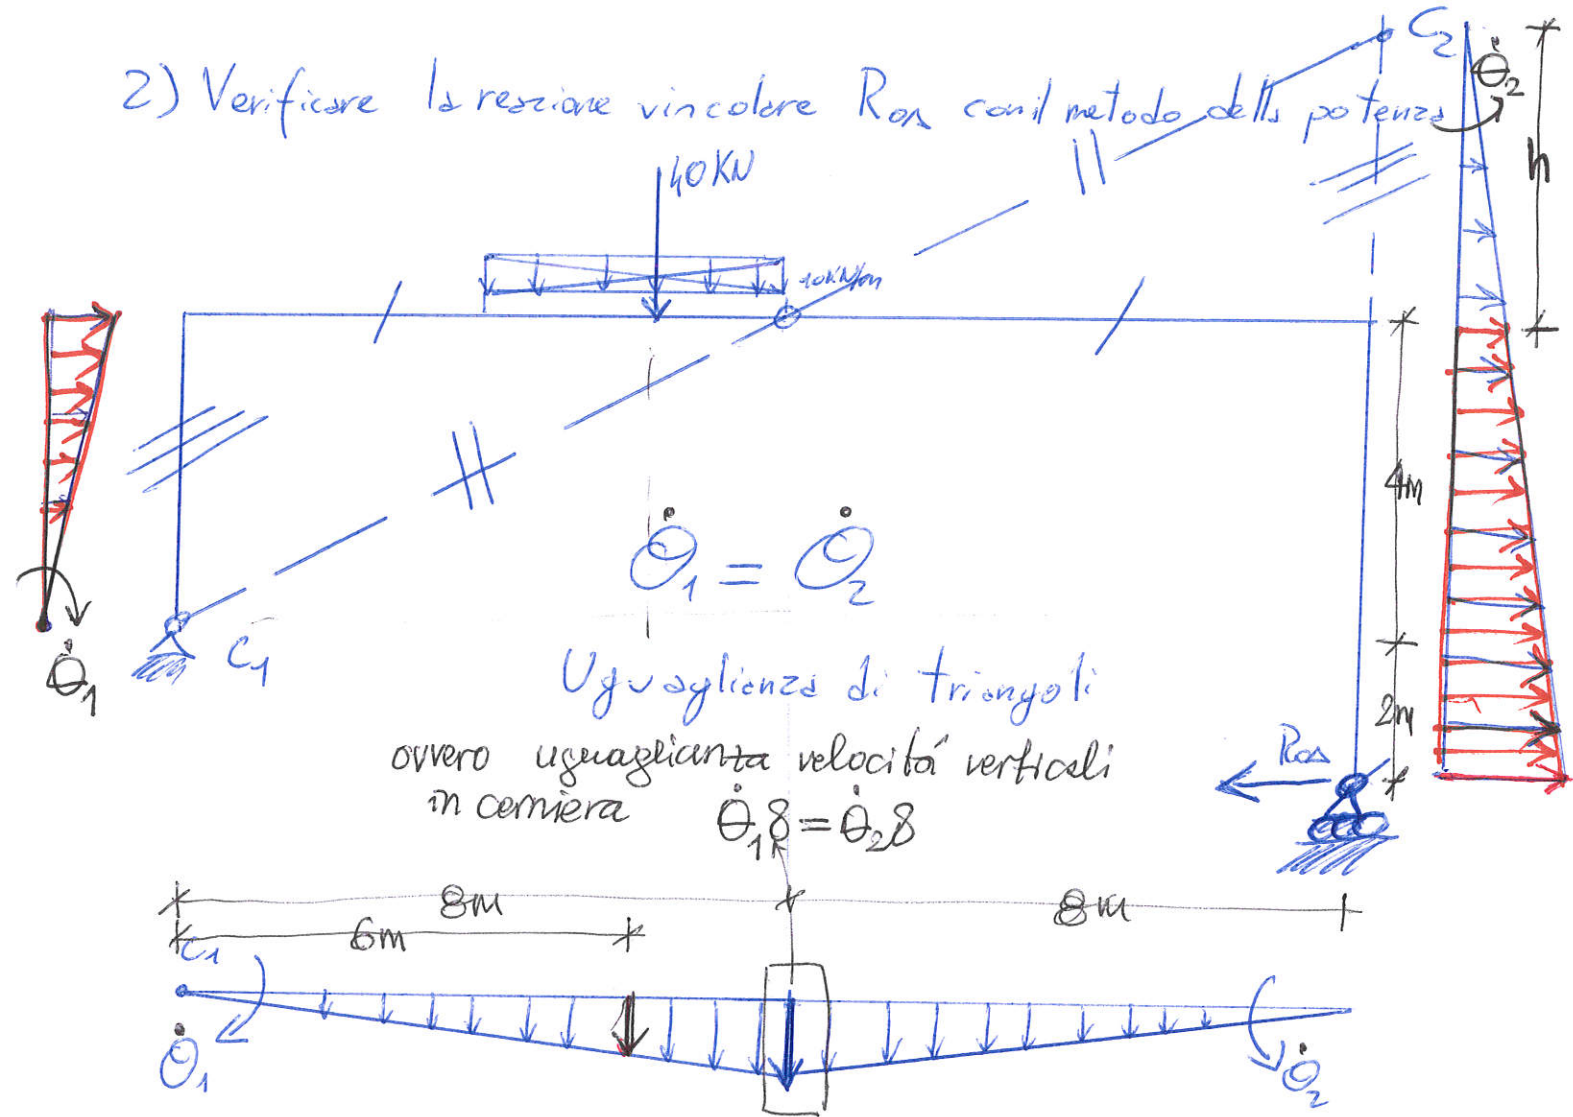 2) Verificare la reazione vincolare ROA con il metodo della potenza
C2
Θ̇2
h
40KN
10KN/m
4m
Θ̇1 = Θ̇2
C1
Θ̇1
Uguaglianza di triangoli
2m
ovvero uguaglianza velocitá verticali
in cerniera Θ̇18 = Θ̇28
ROA
8m
8m
6m
C1
Θ̇1
Θ̇2